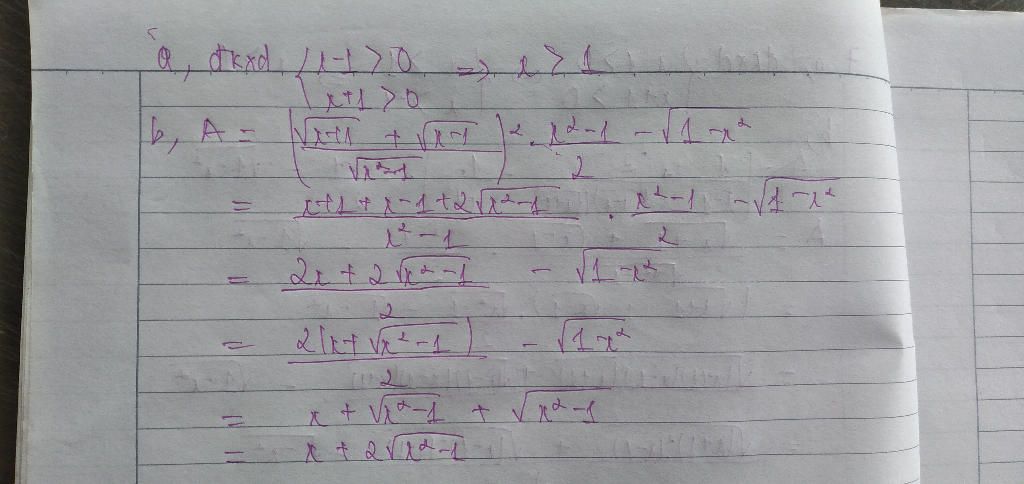 a, đkxđ { x-1 > 0 => x > 1
x+1 > 0
b, A = ( (√(x+1) + √(x-1)) / √(x²-1) )² . (x²-1)/2 - √(1-x²)
= (x+1+x-1+2√(x²-1)) / (x²-1) . (x²-1)/2 - √(1-x²)
= (2x + 2√(x²-1)) / 2 - √(1-x²)
= 2(x+√(x²-1)) / 2 - √(1-x²)
= x + √(x²-1) + √(x²-1)
= x + 2√(x²-1)